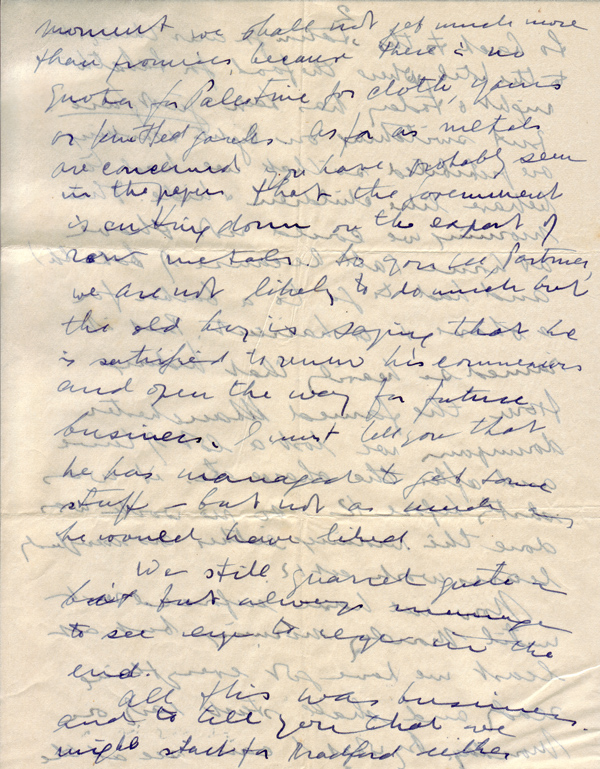 moment we shall not get much more
than promises because there is no
quota for Palestine for cloth, yarns
or knitted goods as far as metals
are concerned you have probably seen
in the papers that the Government
is cutting down on the export of
metals. So you see Partner,
we are not likely to do much but
the old boy is saying that he
is satisfied to renew his connexions
and open the way for future
business. I must tell you that
he has managed to get some
stuff - but not as much as
he would have liked.
We still quarrel quite a
bit but always manage
to see eye to eye in the
end.
All this was business.
and to tell you that we
might start for Bradford either